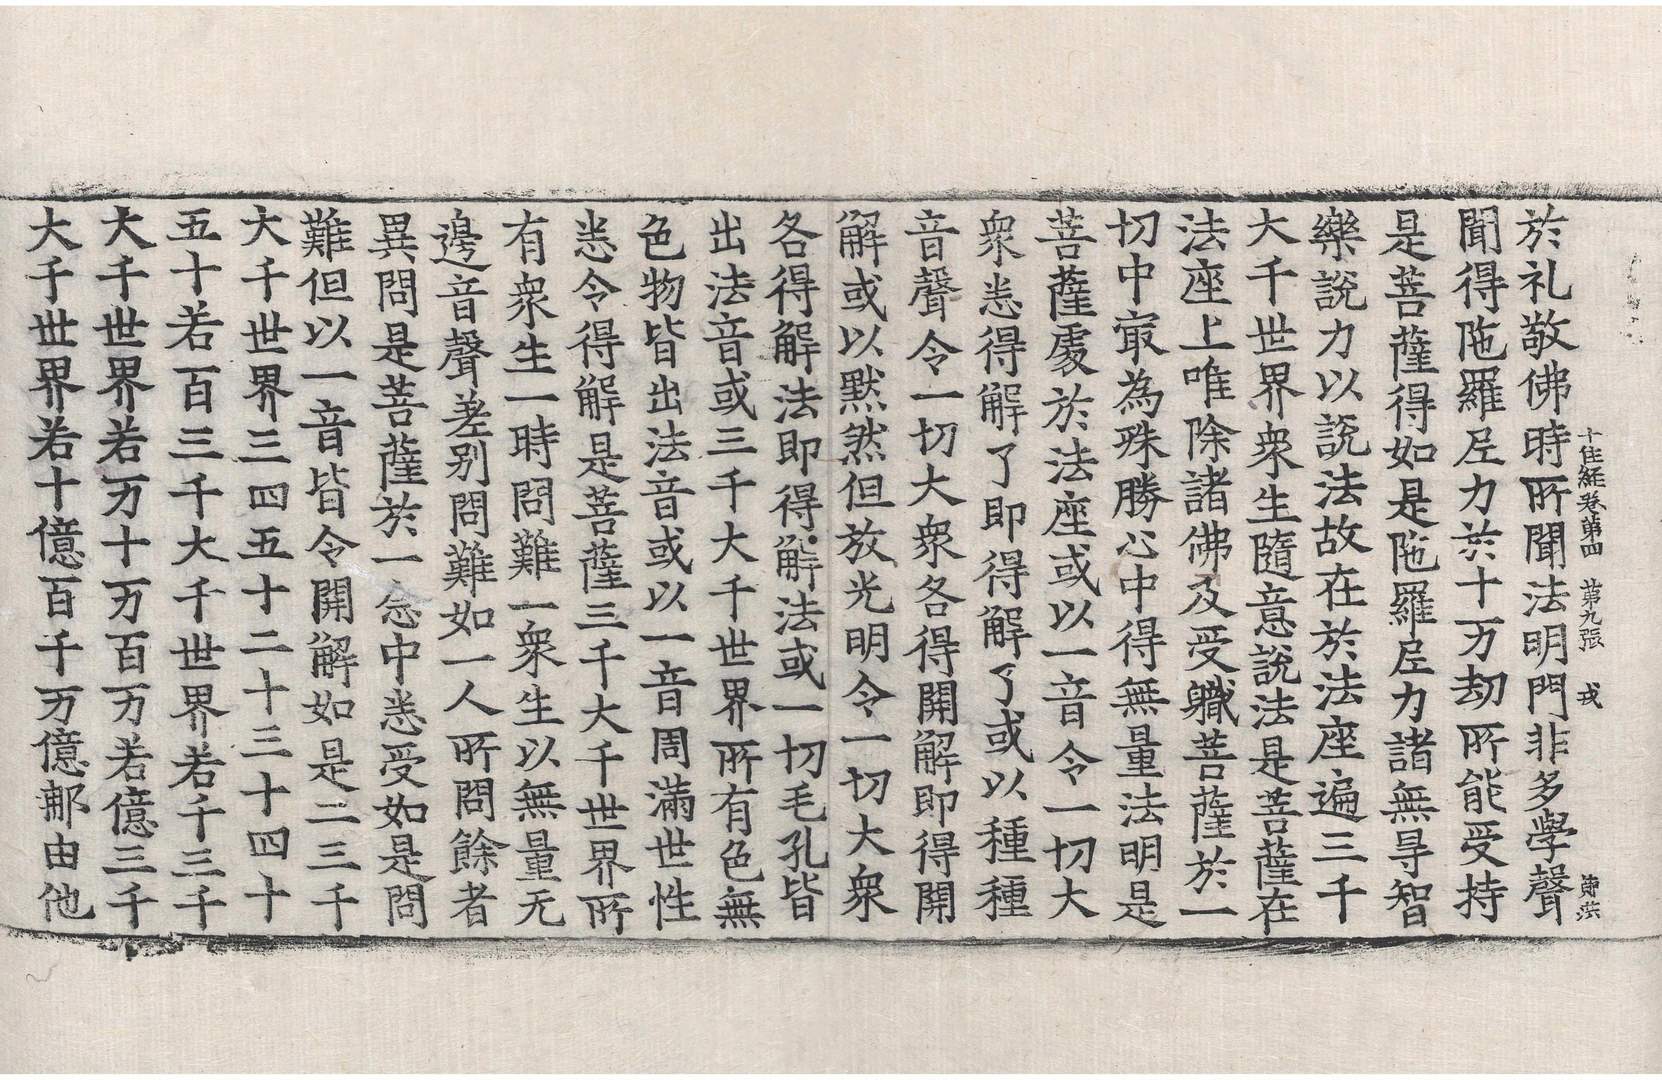 十住経卷第四 第九張 戎
於礼敬佛時所聞法明門非多學聲
聞得陁羅尼力於十万劫所能受持
是菩薩得如是陁羅尼力諸無㝵智
樂說力以說法故在於法座遍三千
大千世界衆生隨意說法是菩薩在
法座上唯除諸佛及受職菩薩於一
切中冣為殊勝心中得無量法明是
菩薩處於法座或以一音令一切大
衆悉得解了即得解了或以種種
音聲令一切大衆各得開解即得開
解或以默然但放光明令一切大衆
各得解法即得解法或一切毛孔皆
出法音或三千大千世界所有色無
色物皆出法音或以一音周滿世性
悉令得解是菩薩三千大千世界所
有衆生一時問難一衆生以無量无
邊音聲差别問難如一人所問餘者
異問是菩薩於一念中悉受如是問
難但以一音皆令開解如是二三千
大千世界三四五十二十三十四十
五十若百三千大千世界若千三千
大千世界若万十万百万若億三千
大千世界若十億百千万億那由他